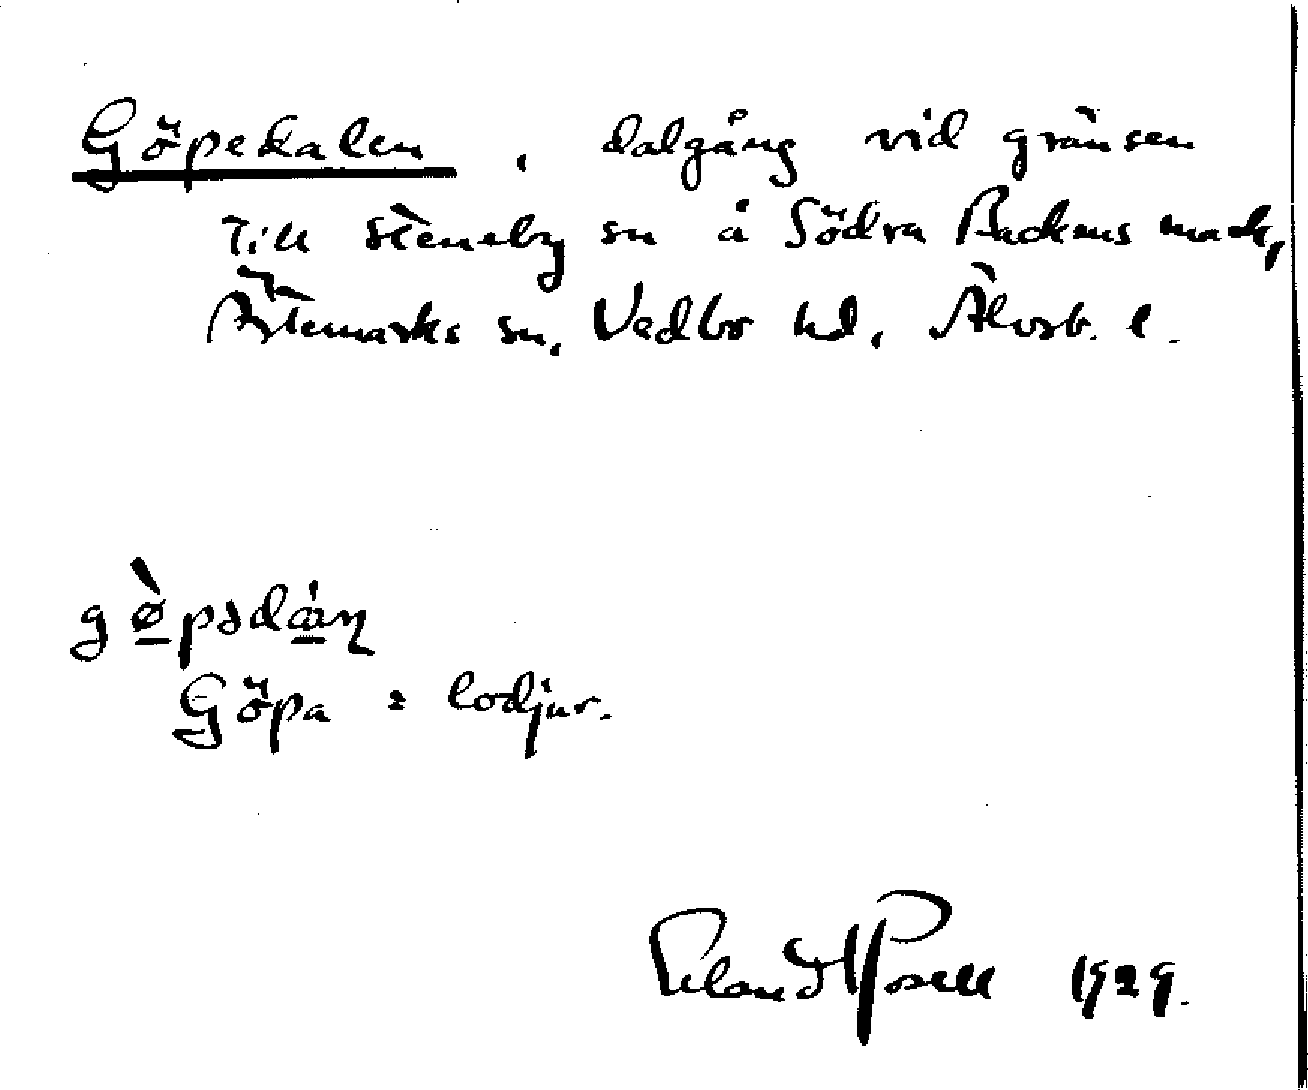 Göpedalen, dalgång vid gränsen
till Steneby sn å Södra Backens mark,
Ärtemarks sn, Vedbo hd, Älvsb. l.
gø̀psdán
Göpa = lodjur.
Erland Rosell 1929.